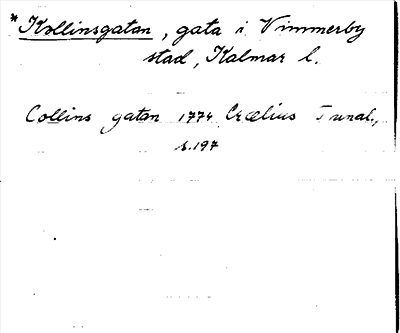 *Kollinsgatan, gata i Vimmerby
stad, Kalmar l.
Collins gatan 1774 Craelius Tunal.,
s.197